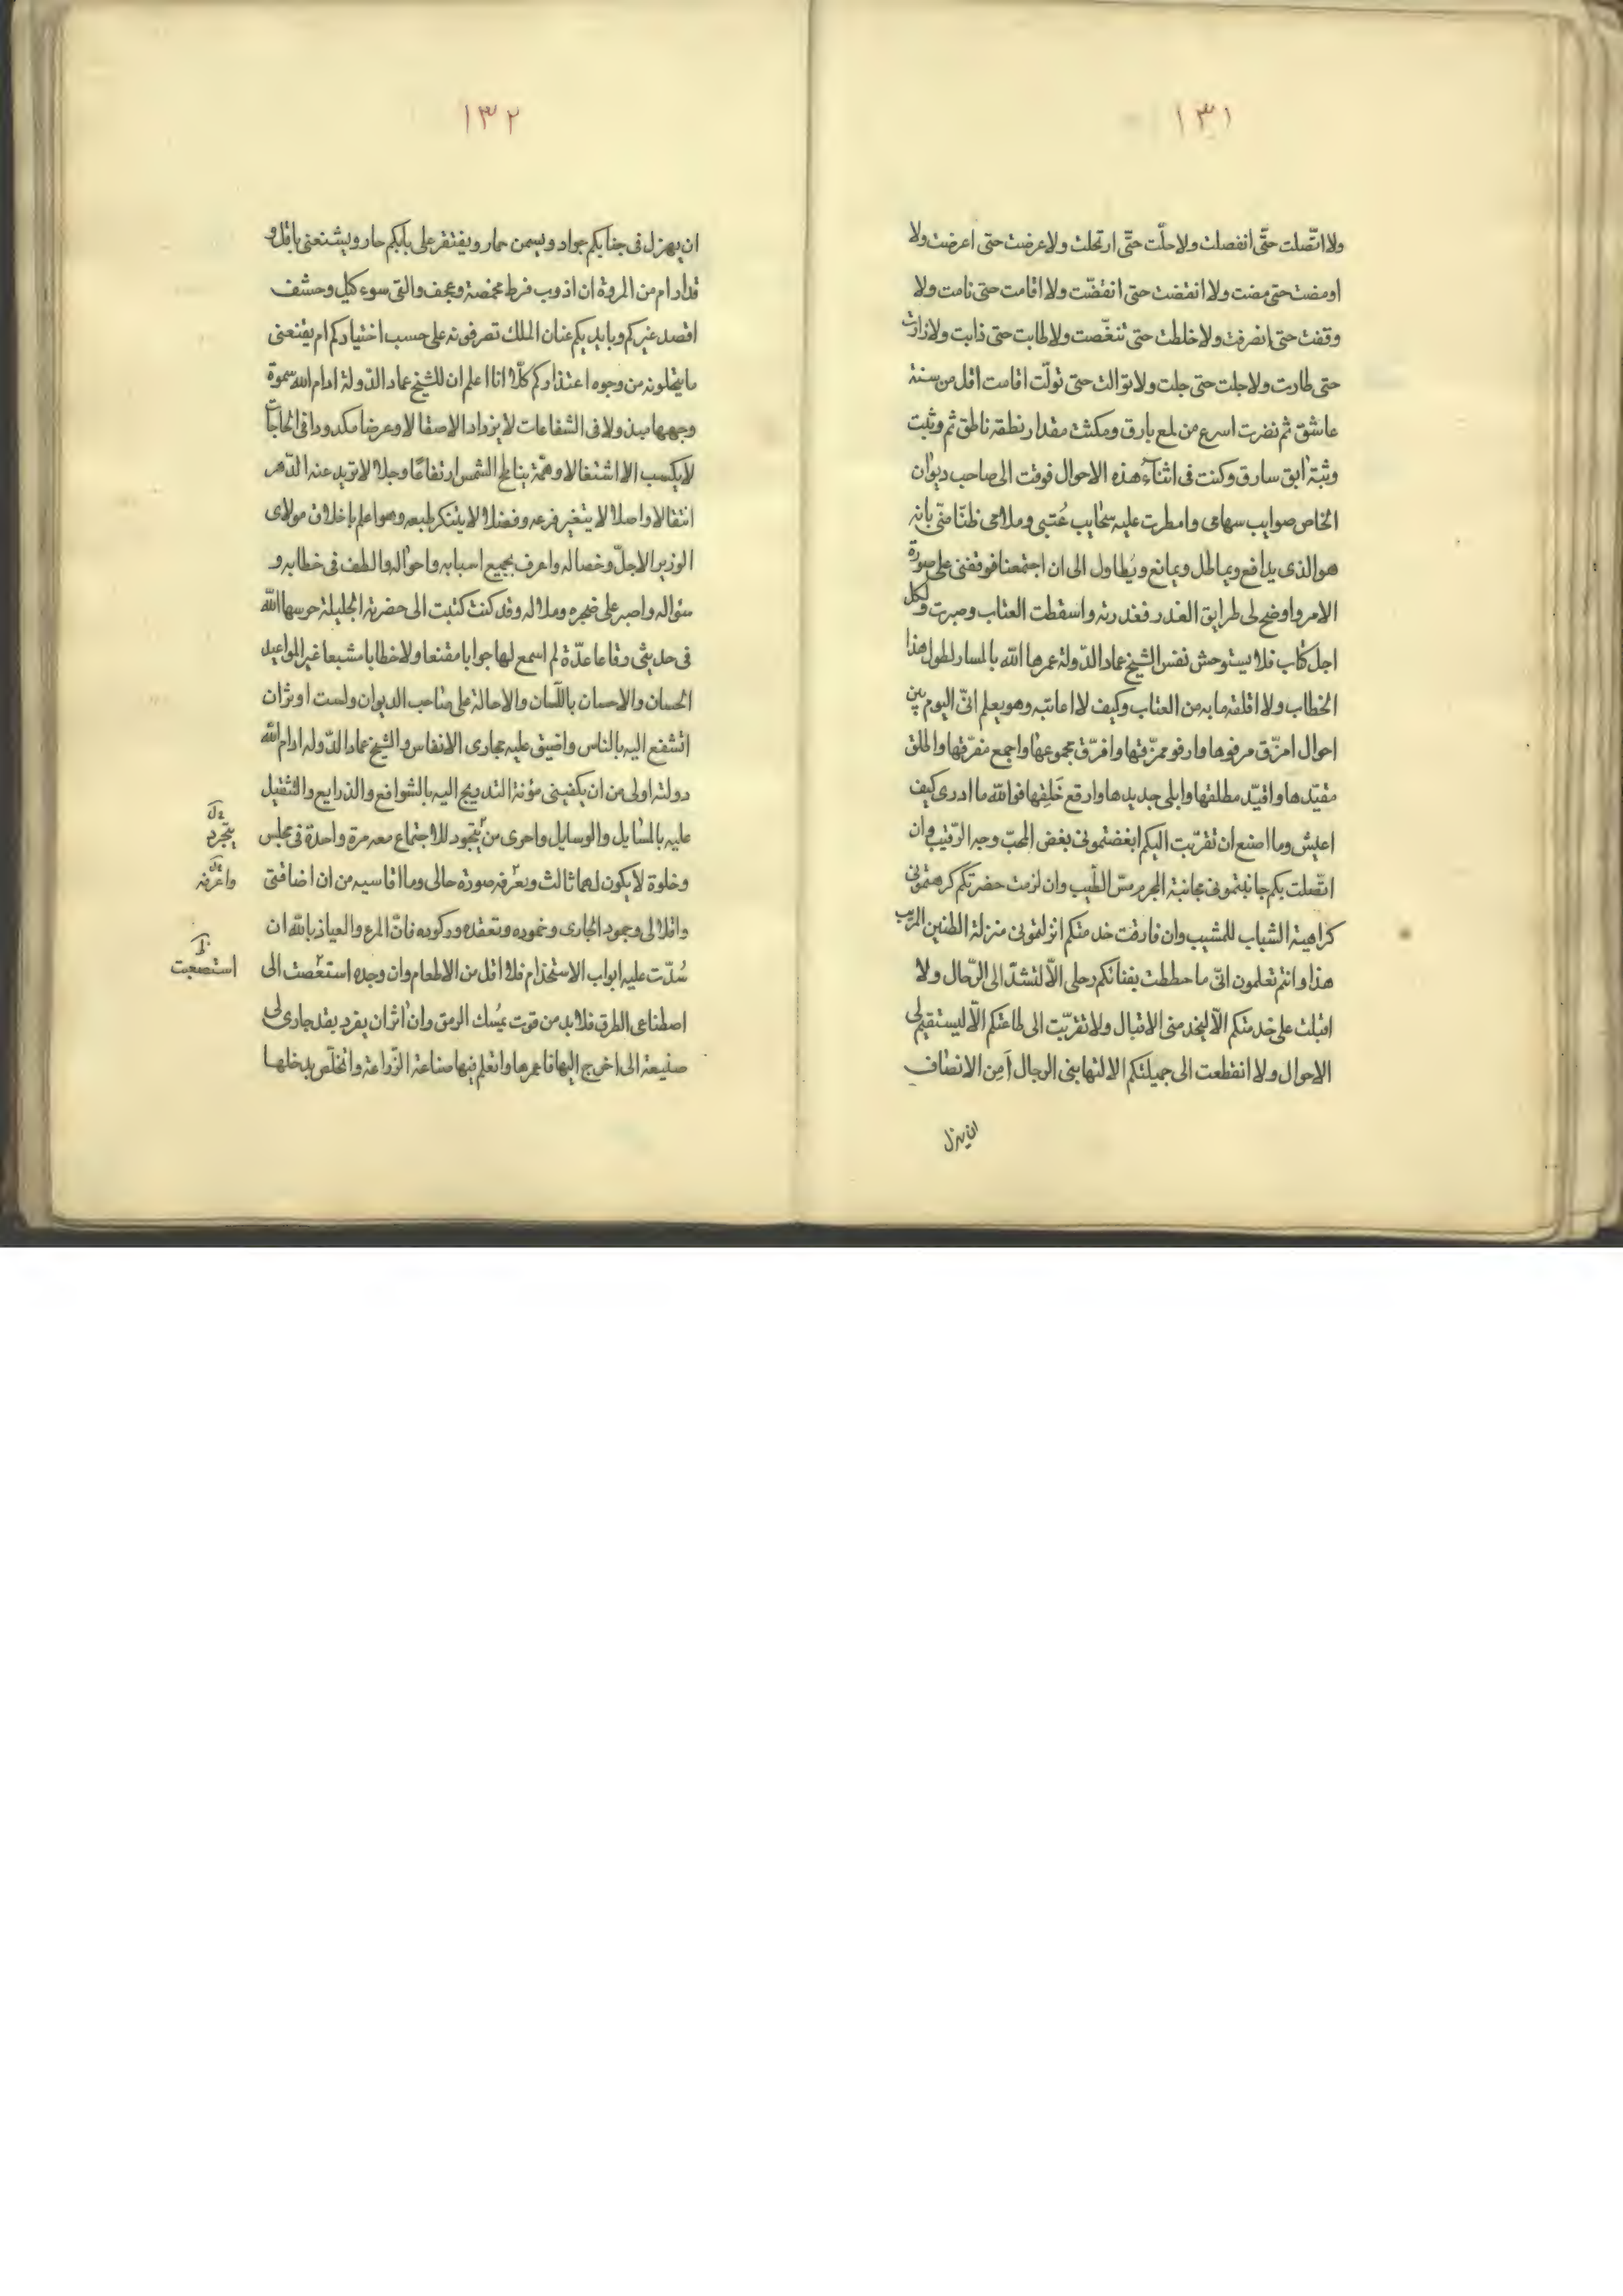 ١٣١
ولا اتّصلت حتّى انفصلت ولا حلّت حتّى ارتحلت ولا عرضت حتى اعرضت ولا
اومضت حتى مضت ولا انقضت حتى انقضّت ولا اقامت حتى نامت ولا
وقفت حتى انصرفت ولا خلطت حتى تنغّصت ولا طابت حتى ذابت ولا زارت
حتى طارت ولا جلت حتى جلت ولا توالت حتى تولّت اقامت اقل من سنة
عاشق ثم نفرت اسرع من لمع بارق ومكثت مقدار نطقه ناطق ثم وثبت
وثبة ابق سارق وكنت فى اثناء هذه الاحوال فوقت الى صاحب ديوان
الخاص صوايب سهامى وامطرت عليه سحايب عُتبى وملامى ظنّا منّى بانه
هو الذى يدافع ويماطل ويمانع ويُطاول الى ان اجتمعنا فوقفنى على صورة
الامر واوضح لى طرايق العذر فعذرته واسقطت العتاب وصبرت ولكل
اجل كتاب فلا يستوحش نفس الشيخ عماد الدّولة عمرها الله بالمسار لطول هذا
الخطاب ولا اقلقه ما به من العتاب وكيف لا اعاتبه وهو يعلم انّى اليوم بين
احوال امزّق مرفوها وارفو ممزّقها وافرّق مجموعها واجمع مفرّقها واطلق
مقيّدها واقيّد مطلقها وابلى جديدها وارقع خَلِقها فوالله ما ادرى كيف
اعيش وما اصنع ان تقرّبت اليكم ابغضتمونى بغض المحبّ وجه الرّقيب وان
اتّصلت بكم جانبتمونى مجانبة المجرم مسّ الطّيب وان لزمت حضرتكم كرهتمونى
كراهية الشباب للمشيب وان فارقت خدمتكم انزلتمونى منزلة الظنين المريب
هذا وانتم تعلمون انّى ما حططت بفنائكم رحلى الّا لتشدّ الى الرّحال ولا
اقبلت على خدمتكم الّا ليخدمنى الاقبال ولا تقرّبت الى طاعتكم الّا ليستقيم لى
الاحوال ولا انقطعت الى جميلتكم الا لتهابنى الرجال اَمِن الانصاف
ان يهزل
١٣٢
ان يهزل فى جنابكم جواد ويسمن حمار ويفتقر على بابكم حار ويشنعنى باقل و
قدار ام من المروة ان اذوب فرط مخمصة وعجف والقى سوء كيل وحشف
اقصد غيركم وبايديكم عنان الملك تصرفونه على حسب اختياركم ام يقنعنى
ما يتحلونه من وجوه اعتذاركم كلّا انا اعلم ان للشيخ عماد الدّولة ادام الله سموّه
وجهها مبذولا فى الشفاعات لا يزداد الا صقالا وعرضا مكدودا فى الحاجات
لا يكسب الا اشتغالا وهمّة يناطح الشمس ارتفاعًا وجلالا لا تزيد عنه الدّهر
انتقالا واصلا لا يتغير فرعه وفضلا لا يتنكر طبعه وهو اعلم باخلاق مولاى
الوزير الاجلّ وخصاله واعرف بجميع اسبابه واحواله والطف فى خطابه و
سؤاله واصبر على ضجره وملاله وقد كنت كتبت الى حضرته الجليلة حرسها الله
فى حديثى رقاعا عدّة لم اسمع لها جوابا مقنعا ولا خطابا مشبعا غير المواعيد
الحسان والاحسان باللّسان والاحالة على صاحب الديوان ولست اوثر ان
اتشفع اليه بالناس واضيق عليه مجارى الانفاس والشيخ عماد الدّوله ادام الله
دولته اولى من ان يكفينى مؤنة التدريج اليه بالشوافع والذرايع والتثقيل
عليه بالمسايل والوسايل واحرى من يتجود للاجتماع معه مرة واحدة فى مجلس
يتجرد
وخلوة لا يكون لهما ثالث ويعرّفه صورة حالى وما اقاسيه من ان اضافتى
واعرفه
واقلالى وجمود الجارى وخموده وتعقده وركوده فانّ المرء والعياذ بالله ان
سُدّت عليه ابواب الاستخدام فلا اقل من الاطعام وان وجده استعصت الى
استصعبت
اصطناعى الطرق فلا بد من قوت يمُسك الرمق وان اثر ان يفرد بقد جارى لى
ضيعة الى اخرج اليها فاعمرها واتعلم فيها صناعة الزّراعة واتخلّص بدخلها